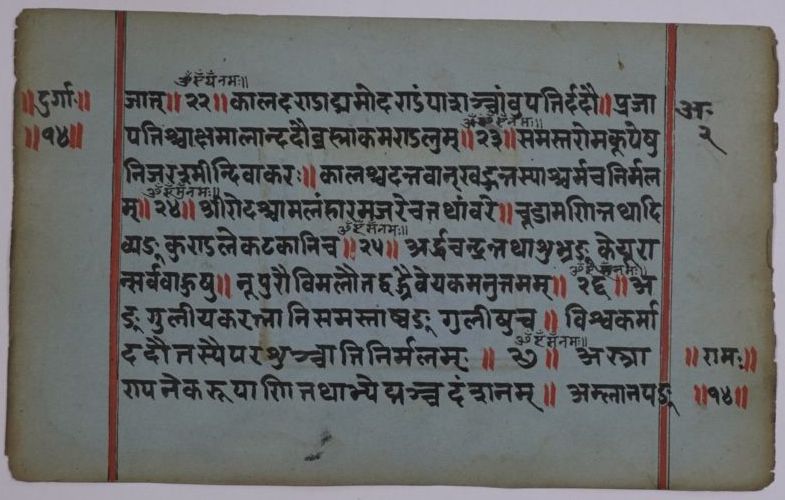 ॐ ऐँ यँ नमः॥
॥दुर्गाः॥ जात्॥ २२॥ कालदराडाद्यमोदराडंपाशञ्चांवुपतिर्ददौ॥ प्रजा अ॰
॥१४॥ पतिश्चाक्षमालान्ददौव्रह्माकमराडलुम्॥ २३॥ समस्तरोमकूपेषु २
निजरश्मीन्दिवाकरः॥ कालश्चदत्तवान्खङ्गन्तस्याश्चर्मचनिर्मल
म्॥ २४॥ क्षीरोदश्चामलंहारमजरेचतथांवरे॥ चूडामणिन्तथादि
व्यङ् कुराडलेकटकानिच॥ २५॥ अर्द्धचन्द्रन्तथाशुभ्रङ् केयूरा
न्सर्ववाहुषु॥ नूपुरौविमलौतद्वद्ग्रैवेयकमनुत्तमम्॥ २६॥ अ
ङ् गुलीयकरत्नानिसमस्ताष्वङ् गुलीषुच॥ विश्वकर्मा
ददौतस्यैपरशुञ्चातिनिर्मलम्॥ २७॥ अस्त्रा ॥रामः॥
रायनेकरूपाणितथाभेद्यञ्चदंशनम्॥ अम्लानपङ् ॥१४॥